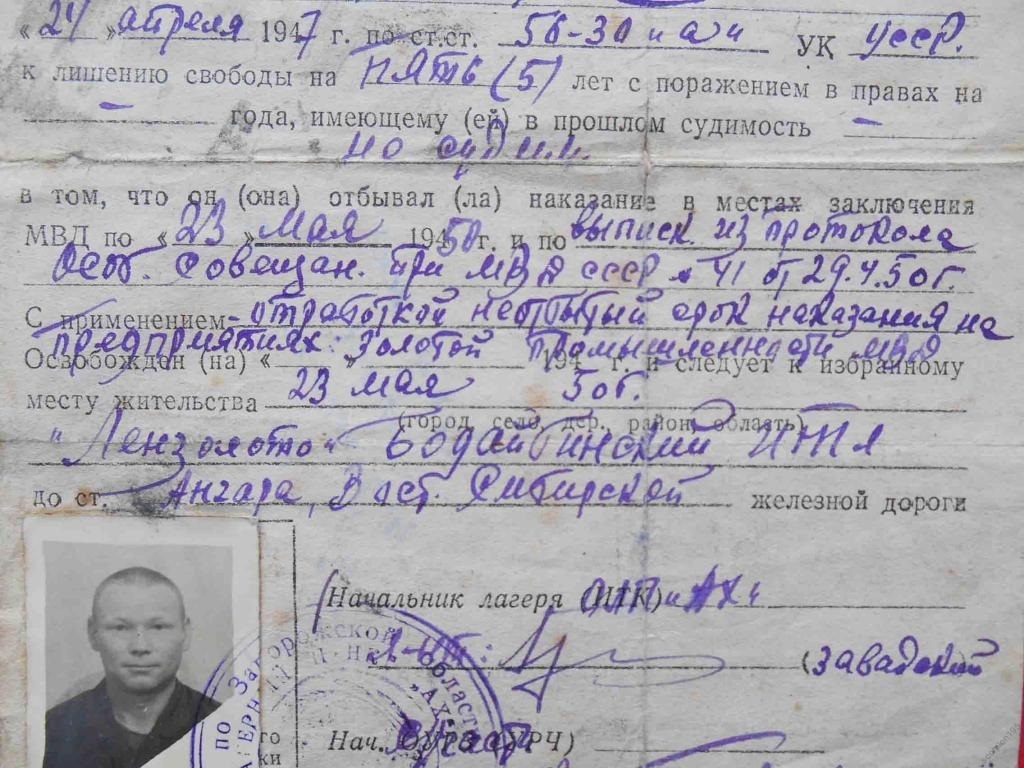 «24» апреля 1947 г. по ст.ст. 56-30 "а" УК УССР.
к лишению свободы на пять (5) лет с поражением в правах на
— года, имеющему (ей) в прошлом судимость —
не судим.
в том, что он (она) отбывал (ла) наказание в местах заключения
МВД по «23» мая 1950 г. и по выписк. из протокола
Особ. совещан. при МВД СССР № 41 от 29.4.50г.
С применением - отработкой неотбытый срок наказания на
предприятиях: золотой промышленности МВД
Освобожден (на) « » 194 г. и следует к избранному
23 мая 50г.
месту жительства
(город, село, дер., район, область)
"Лензолото" Бодайбинский ИТЛ
до ст. Ангара, Вост. Сибирской железной дороги
Начальник лагеря (ИТК) "АХ"
(Завадский
Нач. (УРЧ)
по Запорожской области